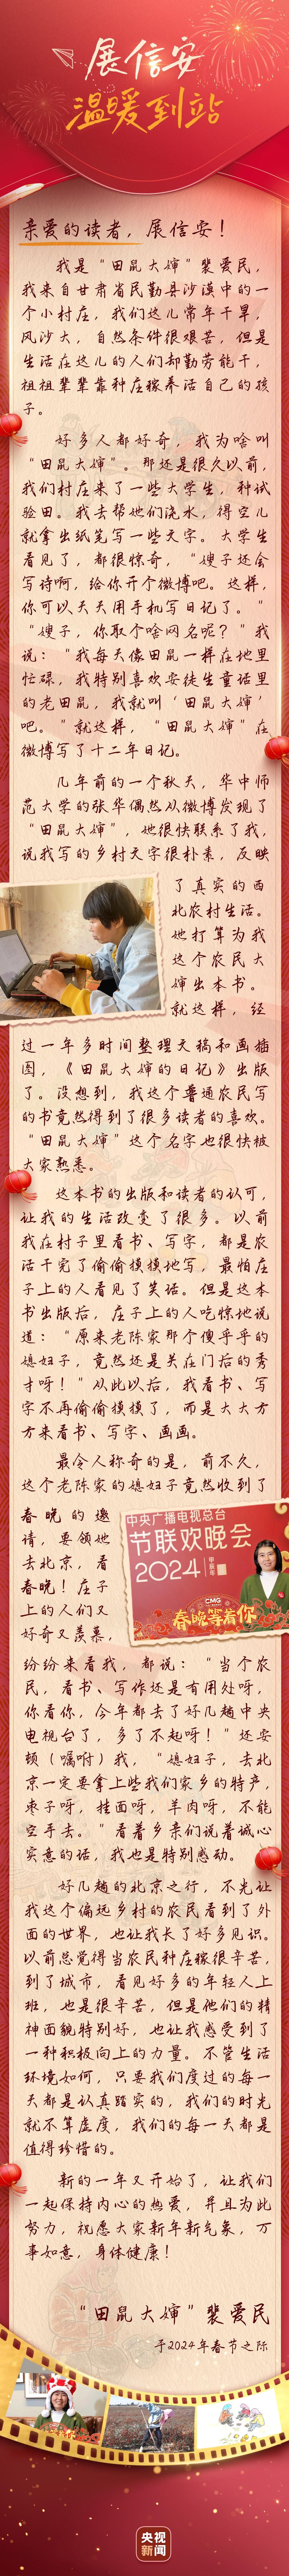 展信安
温暖到站
亲爱的读者，展信安！
我是“田鼠大婶”裴爱民，
我来自甘肃省民勤县沙漠中的一
个小村庄，我们这儿常年干旱，
风沙大，自然条件很艰苦，但是
生活在这儿的人们却勤劳能干，
祖祖辈辈靠种庄稼养活自己的孩
子。
好多人都好奇，我为啥叫
“田鼠大婶”。那还是很久以前，
我们村庄来了一些大学生，种试
验田。我去帮她们浇水，得空儿
就拿出纸笔写一些文字。大学生
看见了，都很惊奇，“嫂子还会
写诗啊，给你开个微博吧。这样，
你可以天天用手机写日记了。”
“嫂子，你取个啥网名呢？”我
说：“我每天像田鼠一样在地里
忙碌，我特别喜欢安徒生童话里
的老田鼠，我就叫‘田鼠大婶’
吧。”就这样，“田鼠大婶”在
微博写了十二年日记。
几年前的一个秋天，华中师
范大学的张华偶然从微博发现了
“田鼠大婶”，她很快联系了我，
说我写的乡村文字很朴素，反映
了真实的西
北农村生活。
她打算为我
这个农民大
婶出本书。
就这样，经
过一年多时间整理文稿和画插
图，《田鼠大婶的日记》出版
了。没想到，我这个普通农民写
的书竟然得到了很多读者的喜欢。
“田鼠大婶”这个名字也很快被
大家熟悉。
这本书的出版和读者的认可，
让我的生活改变了很多。以前
我在村子里看书、写字，都是农
活干完了偷偷摸摸地写，最怕庄
子上的人看见了笑话。但是这本
书出版后，庄子上的人吃惊地说
道：“原来老陈家那个傻乎乎的
媳妇子，竟然还是关在门后的秀
才呀！”从此以后，我看书、写
字不再偷偷摸摸了，而是大大方
方来看书、写字、画画。
最令人称奇的是，前不久，
这个老陈家的媳妇子竟然收到了
春晚的邀
请，要领她
去北京，看
春晚！庄子
上的人们又
好奇又羡慕，
中央广播电视总台
节联欢晚会
2024
甲辰年
CMG
春晚等着你
纷纷来看我，都说：“当个农
民，看书、写作还是有用处呀，
你看你，今年都去了好几趟中央
电视台了，多了不起呀！”还安
顿（嘱咐）我，“媳妇子，去北
京一定要拿上些我们家乡的特产，
枣子呀，挂面呀，羊肉呀，不能
空手去。”看着乡亲们说着诚心
实意的话，我也是特别感动。
好几趟的北京之行，不光让
我这个偏远乡村的农民看到了外
面的世界，也让我长了好多见识。
以前总觉得当农民种庄稼很辛苦，
到了城市，看见好多的年轻人上
班，也是很辛苦，但是他们的精
神面貌特别好，也让我感受到了
一种积极向上的力量。不管生活
环境如何，只要我们度过的每一
天都是认真踏实的，我们的时光
就不算虚度，我们的每一天都是
值得珍惜的。
新的一年又开始了，让我们
一起保持内心的热爱，并且为此
努力，祝愿大家新年新气象，万
事如意，身体健康！
“田鼠大婶”裴爱民
于2024年春节之际
央视
新闻